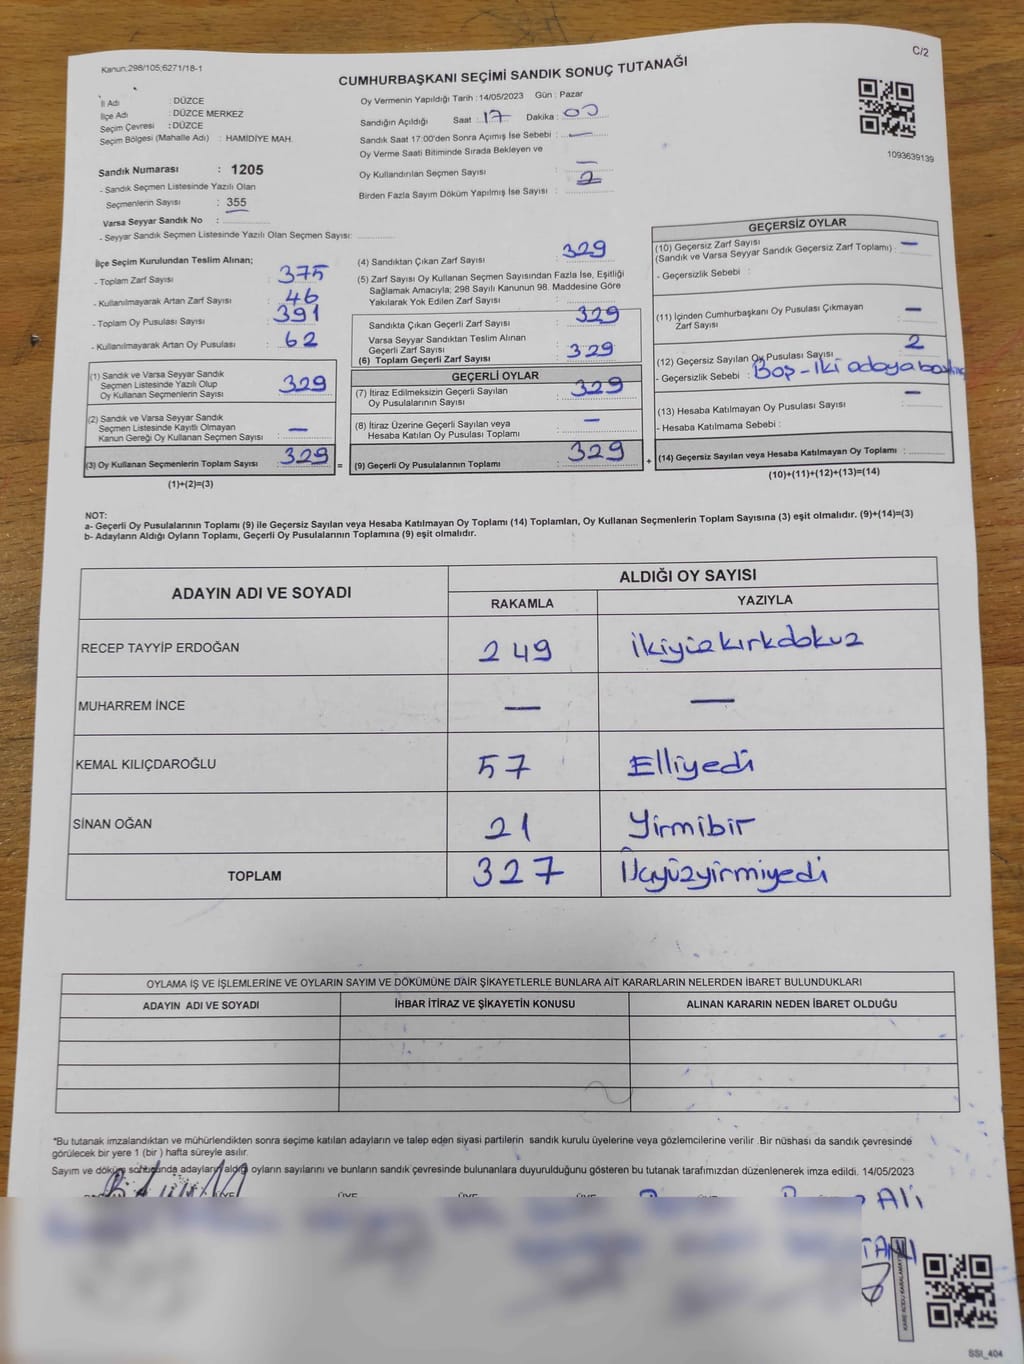 Kanun:298/105;6271/18-1
C/2
CUMHURBAŞKANI SEÇİMİ SANDIK SONUÇ TUTANAĞI
İl Adı : DÜZCE
İlçe Adı : DÜZCE MERKEZ
Seçim Çevresi : DÜZCE
Seçim Bölgesi (Mahalle Adı) : HAMİDİYE MAH.
Sandık Numarası : 1205
- Sandık Seçmen Listesinde Yazılı Olan
Seçmenlerin Sayısı : 355
Varsa Seyyar Sandık No :
- Seyyar Sandık Seçmen Listesinde Yazılı Olan Seçmen Sayısı:
Oy Vermenin Yapıldığı Tarih : 14/05/2023 Gün : Pazar
Sandığın Açıldığı Saat : 17 Dakika : 00
Sandık Saat 17:00'den Sonra Açımış İse Sebebi : —
Oy Verme Saati Bitiminde Sırada Bekleyen ve
Oy Kullandırılan Seçmen Sayısı : —
Birden Fazla Sayım Döküm Yapılmış İse Sayısı : 2
1093639139
İlçe Seçim Kurulundan Teslim Alınan;
- Toplam Zarf Sayısı : 375
- Kullanılmayarak Artan Zarf Sayısı : 46
- Toplam Oy Pusulası Sayısı : 391
- Kullanılmayarak Artan Oy Pusulası : 62
(1) Sandık ve Varsa Seyyar Sandık
Seçmen Listesinde Yazılı Olup
Oy Kullanan Seçmenlerin Sayısı : 329
(2) Sandık ve Varsa Seyyar Sandık
Seçmen Listesinde Kayıtlı Olmayan
Kanun Gereği Oy Kullanan Seçmen Sayısı : —
(3) Oy Kullanan Seçmenlerin Toplam Sayısı : 329
(1)+(2)=(3)
(4) Sandıktan Çıkan Zarf Sayısı : 329
(5) Zarf Sayısı Oy Kullanan Seçmen Sayısından Fazla İse, Eşitliği
Sağlamak Amacıyla; 298 Sayılı Kanunun 98. Maddesine Göre
Yakılarak Yok Edilen Zarf Sayısı :
Sandıkta Çıkan Geçerli Zarf Sayısı : 329
Varsa Seyyar Sandıktan Teslim Alınan
Geçerli Zarf Sayısı :
(6) Toplam Geçerli Zarf Sayısı : 329
GEÇERLİ OYLAR
(7) İtiraz Edilmeksizin Geçerli Sayılan
Oy Pusulalarının Sayısı : 329
(8) İtiraz Üzerine Geçerli Sayılan veya
Hesaba Katılan Oy Pusulası Toplamı : —
= (9) Geçerli Oy Pusulalarının Toplamı : 329 +
GEÇERSİZ OYLAR
(10) Geçersiz Zarf Sayısı : —
(Sandık ve Varsa Seyyar Sandık Geçersiz Zarf Toplamı)
- Geçersizlik Sebebi :
(11) İçinden Cumhurbaşkanı Oy Pusulası Çıkmayan
Zarf Sayısı : —
(12) Geçersiz Sayılan Oy Pusulası Sayısı : 2
- Geçersizlik Sebebi : Boş - iki adaya
(13) Hesaba Katılmayan Oy Pusulası Sayısı : —
- Hesaba Katılmama Sebebi :
(14) Geçersiz Sayılan veya Hesaba Katılmayan Oy Toplamı :
(10)+(11)+(12)+(13)=(14)
NOT:
a- Geçerli Oy Pusulalarının Toplamı (9) ile Geçersiz Sayılan veya Hesaba Katılmayan Oy Toplamı (14) Toplamları, Oy Kullanan Seçmenlerin Toplam Sayısına (3) eşit olmalıdır. (9)+(14)=(3)
b- Adayların Aldığı Oyların Toplamı, Geçerli Oy Pusulalarının Toplamına (9) eşit olmalıdır.
ADAYIN ADI VE SOYADI
ALDIĞI OY SAYISI
RAKAMLA YAZIYLA
RECEP TAYYİP ERDOĞAN 249 ikiyüzkırkdokuz
MUHARREM İNCE — —
KEMAL KILIÇDAROĞLU 57 Elliyedi
SİNAN OĞAN 21 Yirmibir
TOPLAM 327 Üçyüzyirmiyedi
OYLAMA İŞ VE İŞLEMLERİNE VE OYLARIN SAYIM VE DÖKÜMÜNE DAİR ŞİKAYETLERLE BUNLARA AİT KARARLARIN NELERDEN İBARET BULUNDUKLARI
ADAYIN ADI VE SOYADI İHBAR İTİRAZ VE ŞİKAYETİN KONUSU ALINAN KARARIN NEDEN İBARET OLDUĞU
"Bu tutanak imzalandıktan ve mühürlendikten sonra seçime katılan adayların ve talep eden siyasi partilerin sandık kurulu üyelerine veya gözlemcilerine verilir .Bir nüshası da sandık çevresinde
görülecek bir yere 1 (bir ) hafta süreyle asılır.
Sayım ve döküm sonucunda adayların aldığı oyların sayılarını ve bunların sandık çevresinde bulunanlara duyurulduğunu gösteren bu tutanak tarafımızdan düzenlenerek imza edildi. 14/05/2023
ÜYE ÜYE ÜYE ÜYE
Ali
SSI_404